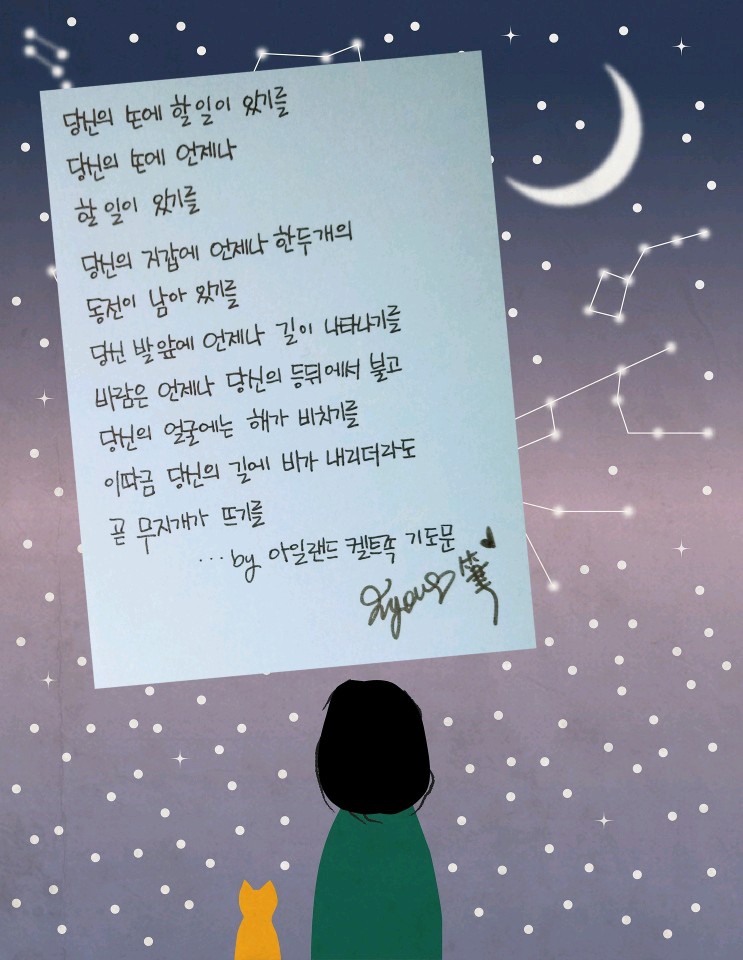 당신의 손에 할 일이 있기를
당신의 손에 언제나
할 일이 있기를
당신의 지갑에 언제나 한두개의
동전이 남아 있기를
당신 발 앞에 언제나 길이 나타나기를
바람은 언제나 당신의 등뒤에서 불고
당신의 얼굴에는 해가 비치기를
이따금 당신의 길에 비가 내리더라도
곧 무지개가 뜨기를
...by 아일랜드 켈트족 기도문
筆